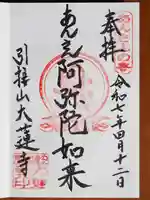 奉拝
令和七年四月十二日
あんころ阿弥陀如来
引接山大蓮寺